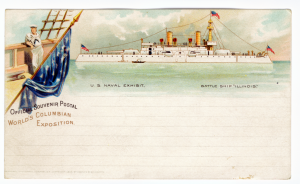 U. S. NAVAL EXHIBIT.
BATTLE SHIP "ILLINOIS".
OFFICIAL SOUVENIR POSTAL
WORLD'S COLUMBIAN
EXPOSITION